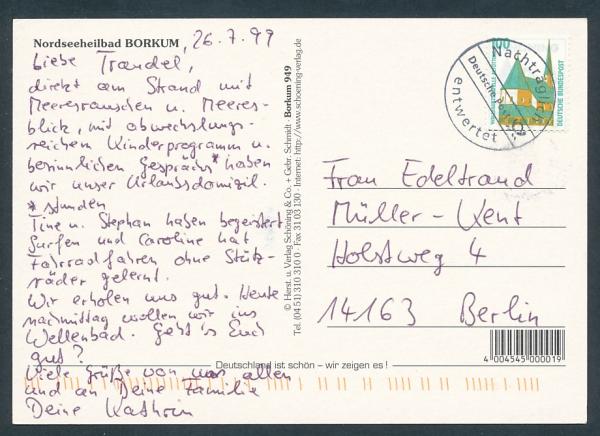 Nordseeheilbad BORKUM, 26.7.99
Liebe Traudel,
direkt am Strand mit
Meeresrauschen u. Meeres-
blick, mit abwechslungs-
reichem Kinderprogramm u.
besinnlichen Gesprächs* haben
wir unser Urlaubsdomizil.
*stunden
Tine u. Stephan haben begeistert
Surfen und Caroline hat
Fahrradfahren ohne Stütz-
räder gelernt.
Wir erholen uns gut. Heute
nachmittag wollen wir ins
Wellenbad. Geht's Euch
gut?
Viele Grüße von uns allen
und an Deine Familie
Deine Kathrin
© Herst. u. Verlag Schöning & Co. + Gebr. Schmidt · Borkum 949
Tel. (04 51) 310 310 0 · Fax 31 03 130 · Internet: http://www.schoening-verlag.de
Deutschland ist schön – wir zeigen es!
100
DEUTSCHE BUNDESPOST
Nachträglich
entwertet
Deutsche Post
Frau Edeltraud
Müller-Kent
Holstweg 4
14163 Berlin
4 004545 000019